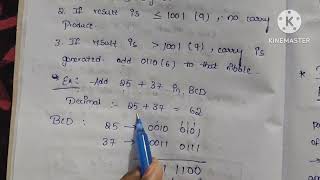 2. If result is ≤ 1001 (9), no carry
Produce.
3. If result is > 1001 (9), carry is
generated add 0110(6) to that nibble.
Ex:- Add 25 + 37 in BCD
Decimal :- 25 + 37 = 62
BCD: 25 → 0010 0101
37 → 0011 0111
1100
KINEMASTER